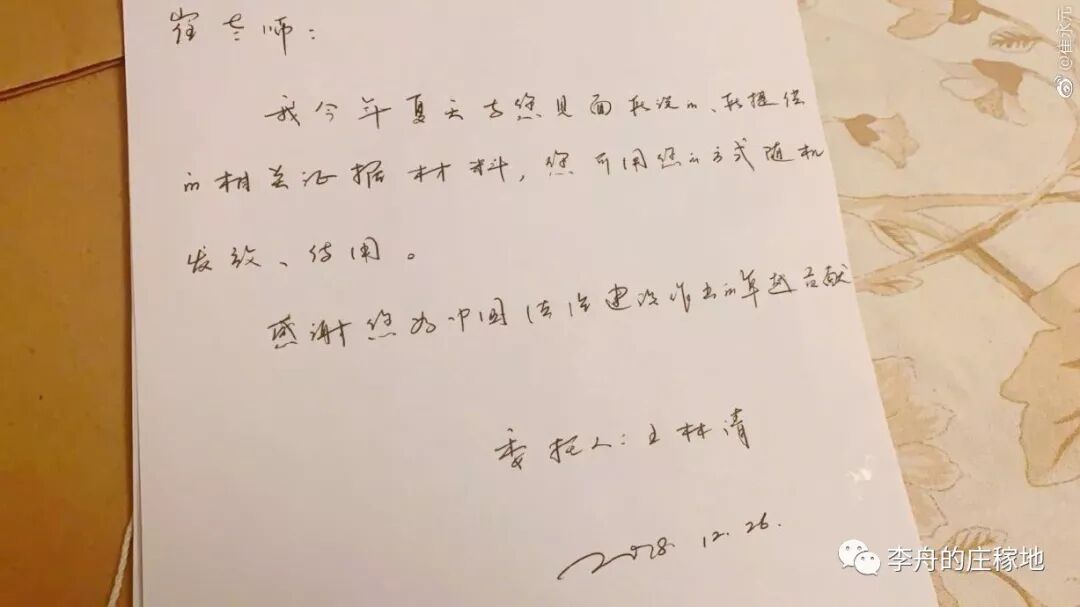 崔老师：
我今年夏天与您见面我说的、我提供
的相关证据材料，您可用您的方式随机
发放、使用。
感谢您为中国法治建设作出的卓越贡献
委托人：王林清
2018.12.26.
@崔永元
李舟的庄稼地